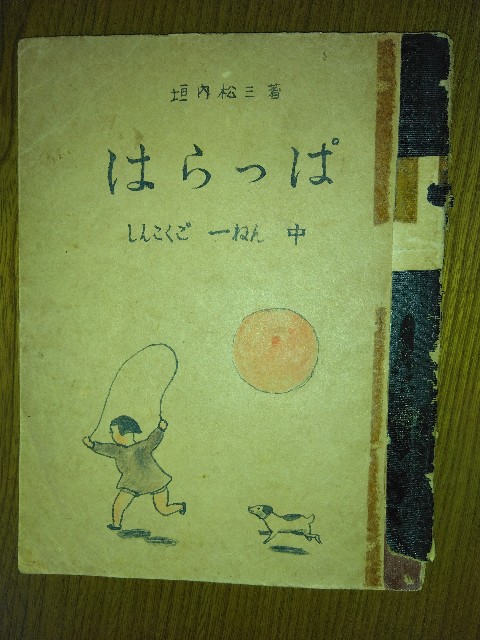 垣内松三著
はらっぱ
しんこくご 一ねん 中